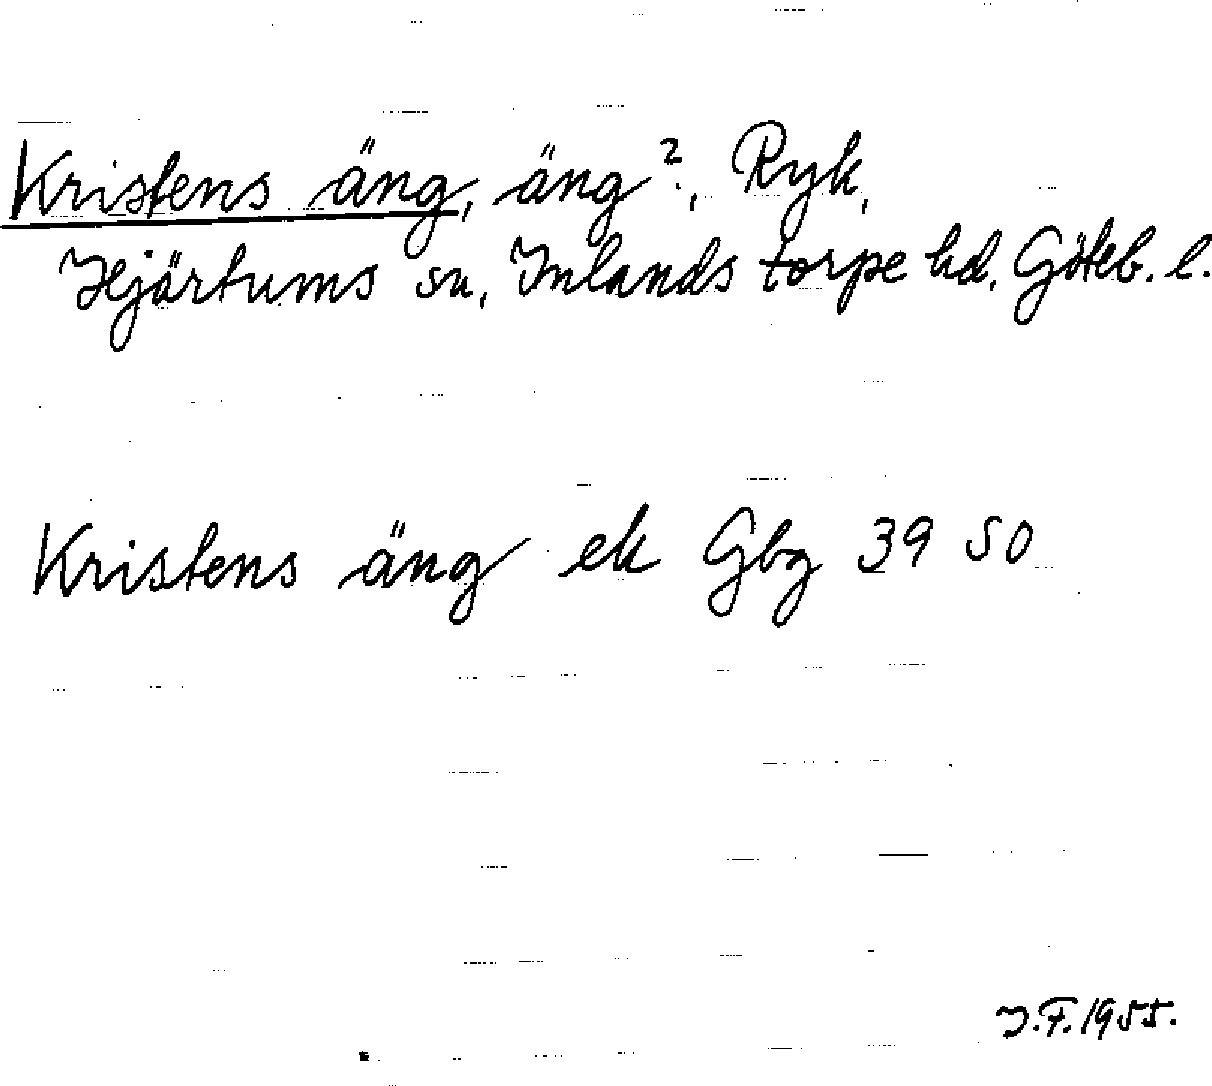 Kristens äng, äng?, Ryk,
Hjärtums sn, Inlands torpe hd. Göteb. l.
Kristens äng ek Gbg 39 50
J.F. 1955.